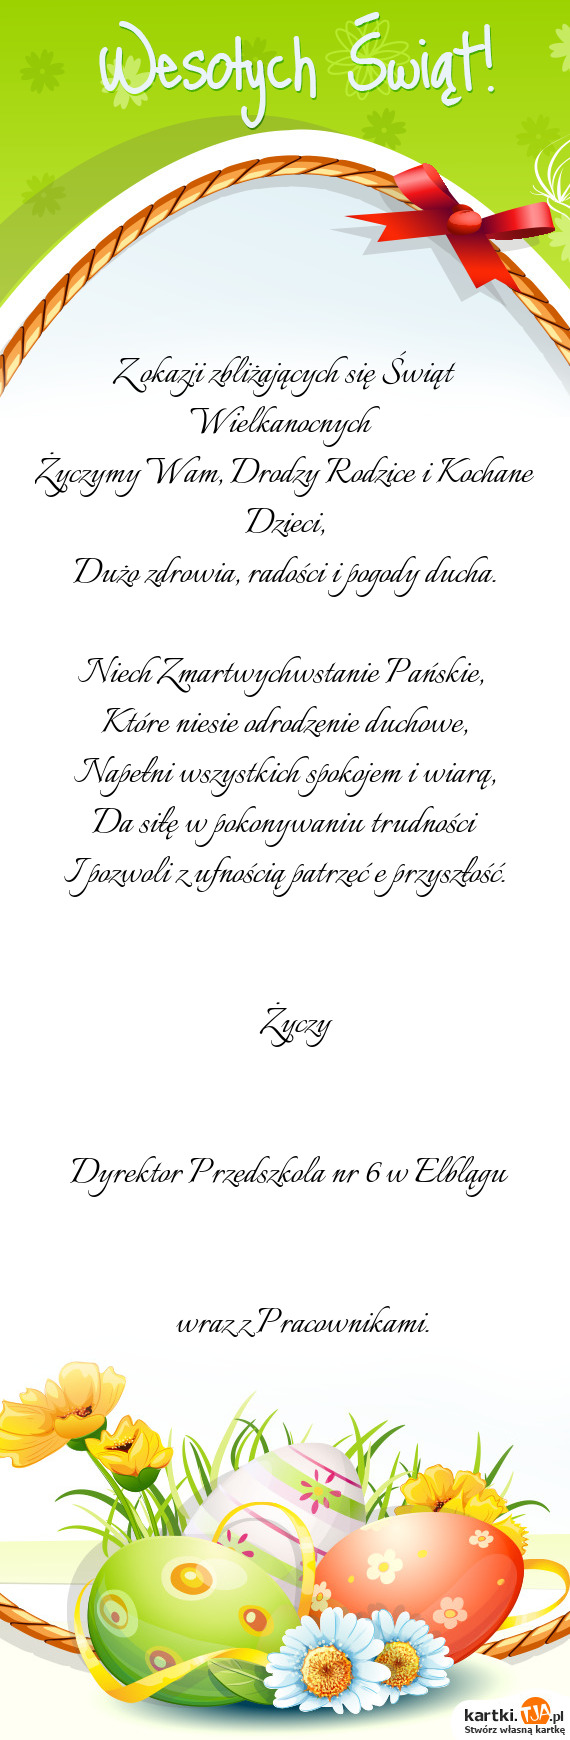 Wesołych Świąt!
Z okazji zbliżających się Świąt
Wielkanocnych
Życzymy Wam, Drodzy Rodzice i Kochane
Dzieci,
Dużo zdrowia, radości i pogody ducha.
Niech Zmartwychwstanie Pańskie,
Które niesie odrodzenie duchowe,
Napełni wszystkich spokojem i wiarą,
Da siłę w pokonywaniu trudności
I pozwoli z ufnością patrzeć e przyszłość.
Życzy
Dyrektor Przedszkola nr 6 w Elblągu
wraz z Pracownikami.
kartki.TJA.pl
Stwórz własną kartkę